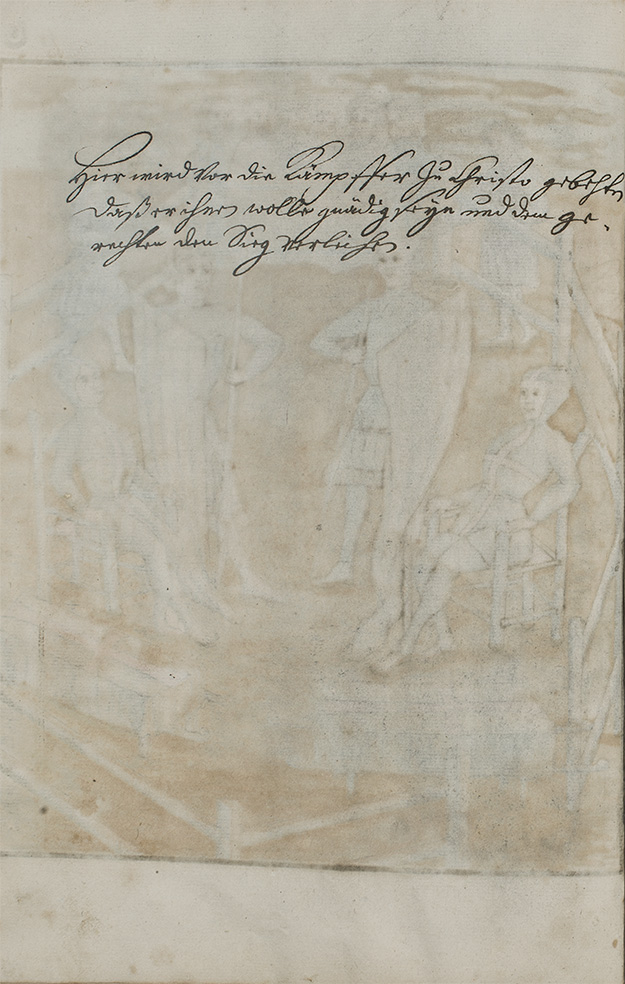 Hier wird vor die Kämpffer zu Christo gebethen
daß er ihnen wolle gnädig seyn und dem ge-
rechten den Sieg verleihen.